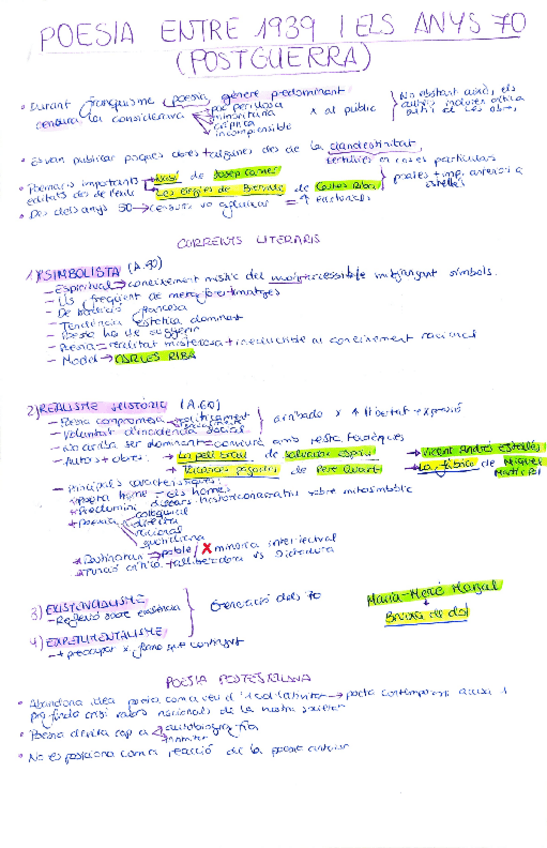 POESIA ENTRE 1939 I ELS ANYS 70
(POSTGUERRA)
• Durant franquisme poesia, gènere predominant
censura la considerava → poc perillosa
minoritària
críptica
incomprensible
x al públic
No obstant això, els
• Es van publicar poques obres + algunes des de la clandestinitat,
tertúlies en cases particulars
• Poemaris importants → Nabí de Josep Carner
editats des de l'exili → Les elegies de Bierville de Carles Riba
poetes + imp. anteriors a
• Des dels anys 50 → censura va afluixar =
CORRENTS LITERARIS
1) SIMBOLISTA (A. 50)
- Espiritual → coneixement místic del món inaccessible mitjançant símbols.
- Ús freqüent de metàfores + imatges
- De tradició francesa
- Tendència estètica dominant
- Poesia ha de suggerir
- Poesia = realitat misteriosa + irreductible al coneixement racional
- Model → CARLES RIBA
2) REALISME HISTÒRIC (A. 60)
- Poesia compromesa → políticament
- Voluntat d'incidència social
x + llibertat expressió
- No arriba ser dominant = conviurà amb resta
- Autors + obres: → La pell de brau de Salvador Espriu → Vicent Andrés Estellés
→ Vacances pagades de Pere Quart → La fàbrica de Miquel
Martí i Pol
- Principals característiques:
* Poeta home = els homes
* Predomini discurs històriconarratiu sobre mitosimbòlic
* Poesia → col·loquial
directa
racional
quotidiana
* Destinatari → poble / X minoria intel·lectual
* Funció crítica + alliberadora vs Dictadura
3) EXISTENCIALISME
- Reflexió sobre existència
Generació dels 70
Maria-Mercè Marçal
↓
Bruixa de dol
4) EXPERIMENTALISME
- + preocupar x forma q contingut
POESIA POSTESTELLIANA
• Abandona idea poesia com a veu d'1 col·lectivitat → poeta contemporani acusa 1
profunda crisi valors nacionals de la nostra societat
• Poesia deriva cap a → autobiografia
• No es posiciona com a reacció de la poesia anterior